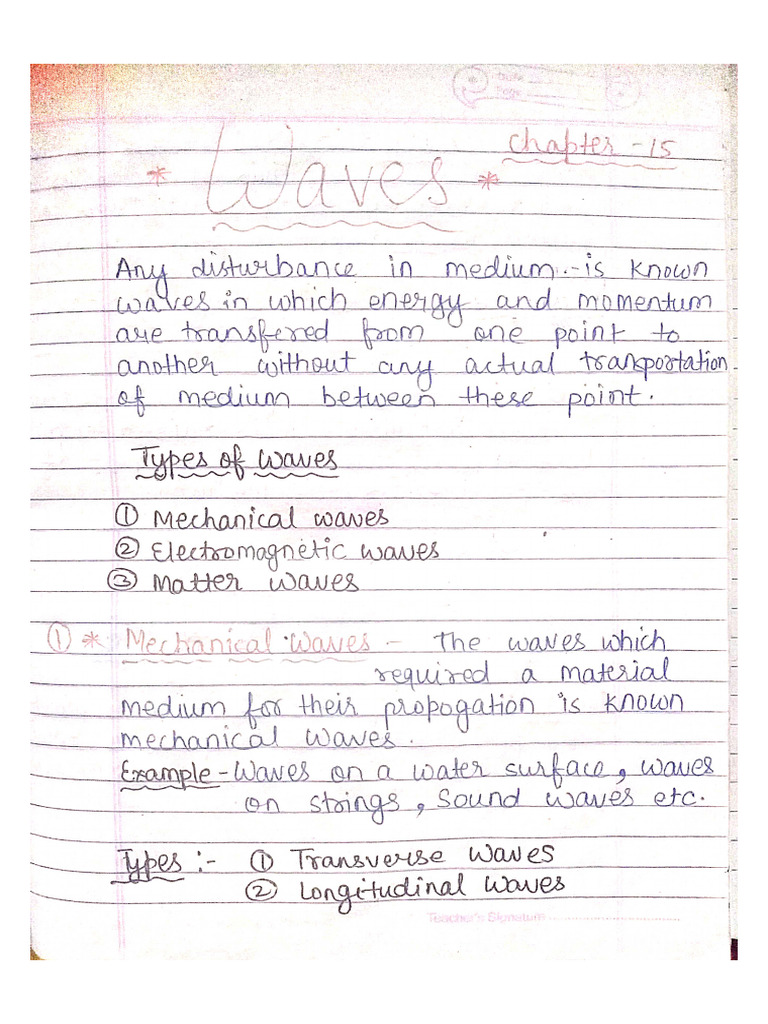 Date
Page
Chapter - 15
* Waves *
Any disturbance in medium.-is known
waves in which energy and momentum
are transfered from one point to
another without any actual transportation
of medium between these point.
Types of waves
① Mechanical waves
② Electromagnetic waves
③ Matter waves
① * Mechanical waves - The waves which
required a material
medium for their propogation is known
mechanical waves.
Example - Waves on a water surface, waves
on strings, sound waves etc.
Types :- ① Transverse waves
② Longitudinal waves
Teacher's Signature